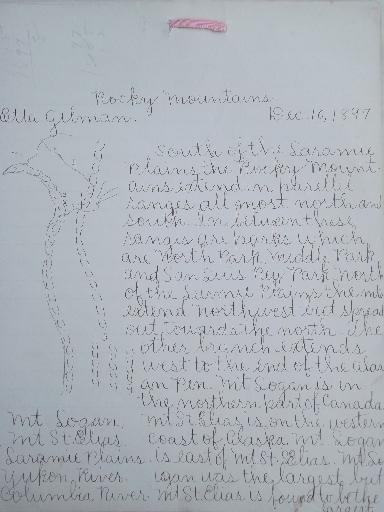 Rocky Mountains
Etta Gilman. Dec. 16, 1897
South of the Laramie
Plains the Rocky Mount-
ains extend in parellel
ranges all most north and
south. In between these
ranges are parks which
are North Park Middle Park
and San Luis Park North
of the Larmie Plains the mts
extend northwest but spread
out towards the north. The
other branch extends
west to the end of the Alas
an Pen. Mt Logan is in
the northern part of Canada
Mt Logan. Mt St. Elias is on the western
Mt St. Elias coast of Alaska Mt. Logan
Laramie Plains is east of Mt St. Elias. Mt Lo
Yukon River gan was the largest but
Columbia River Mt St Elias is found to be the
largest